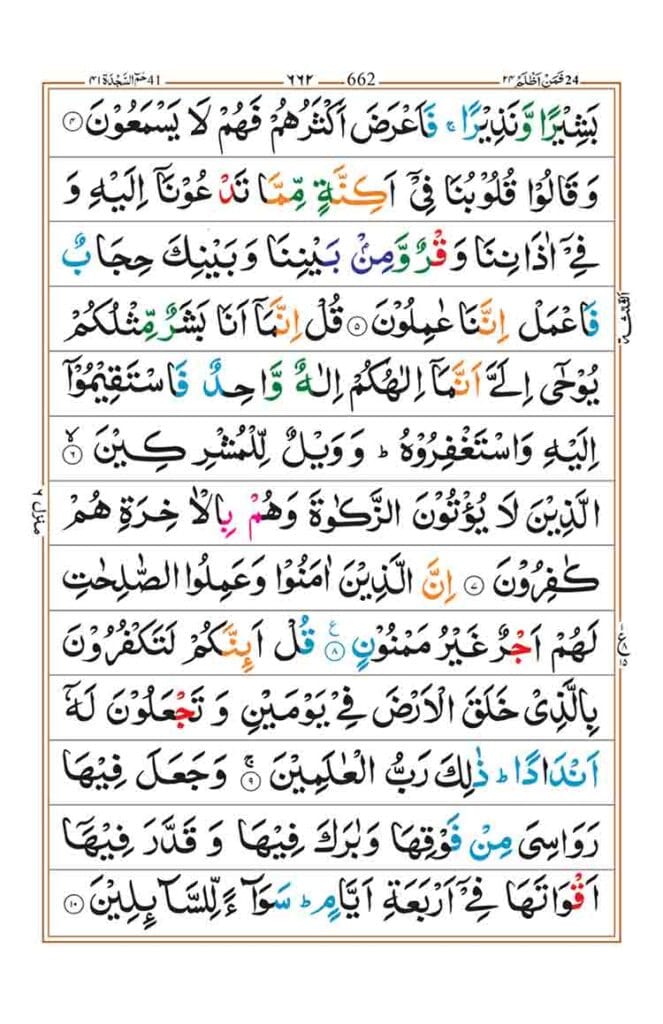 فَمَنْ اَظْلَمُ ٢٤ 24 662 ٦٦٢ حٰمٓ السَّجْدَة ٤١ 41
بَشِيْرًا وَّنَذِيْرًا ۚ فَاَعْرَضَ اَكْثَرُهُمْ فَهُمْ لَا يَسْمَعُوْنَ ۝٤
وَقَالُوْا قُلُوْبُنَا فِيْۤ اَكِنَّةٍ مِّمَّا تَدْعُوْنَاۤ اِلَيْهِ وَ
فِيْۤ اٰذَانِنَا وَقْرٌ وَّمِنْۢ بَيْنِنَا وَبَيْنِكَ حِجَابٌ
فَاعْمَلْ اِنَّنَا عٰمِلُوْنَ ۝٥ قُلْ اِنَّمَاۤ اَنَا بَشَرٌ مِّثْلُكُمْ
الثلثة
يُوْحٰۤى اِلَيَّ اَنَّمَاۤ اِلٰهُكُمْ اِلٰهٌ وَّاحِدٌ فَاسْتَقِيْمُوْۤا
اِلَيْهِ وَاسْتَغْفِرُوْهُ ؕ وَوَيْلٌ لِّلْمُشْرِكِيْنَ ۝٦ۙ
الَّذِيْنَ لَا يُؤْتُوْنَ الزَّكٰوةَ وَهُمْ بِالْاٰخِرَةِ هُمْ
منزل ٦
كٰفِرُوْنَ ۝٧ اِنَّ الَّذِيْنَ اٰمَنُوْا وَعَمِلُوا الصّٰلِحٰتِ
لَهُمْ اَجْرٌ غَيْرُ مَمْنُوْنٍ ۝٨ ع قُلْ اَئِنَّكُمْ لَتَكْفُرُوْنَ
بِالَّذِيْ خَلَقَ الْاَرْضَ فِيْ يَوْمَيْنِ وَ تَجْعَلُوْنَ لَهٗۤ
اَنْدَادًا ؕ ذٰلِكَ رَبُّ الْعٰلَمِيْنَ ۝٩ۚ وَجَعَلَ فِيْهَا
رَوَاسِيَ مِنْ فَوْقِهَا وَبٰرَكَ فِيْهَا وَ قَدَّرَ فِيْهَاۤ
اَقْوَاتَهَا فِيْۤ اَرْبَعَةِ اَيَّامٍ ؕ سَوَآءً لِّلسَّآئِلِيْنَ ۝١٠